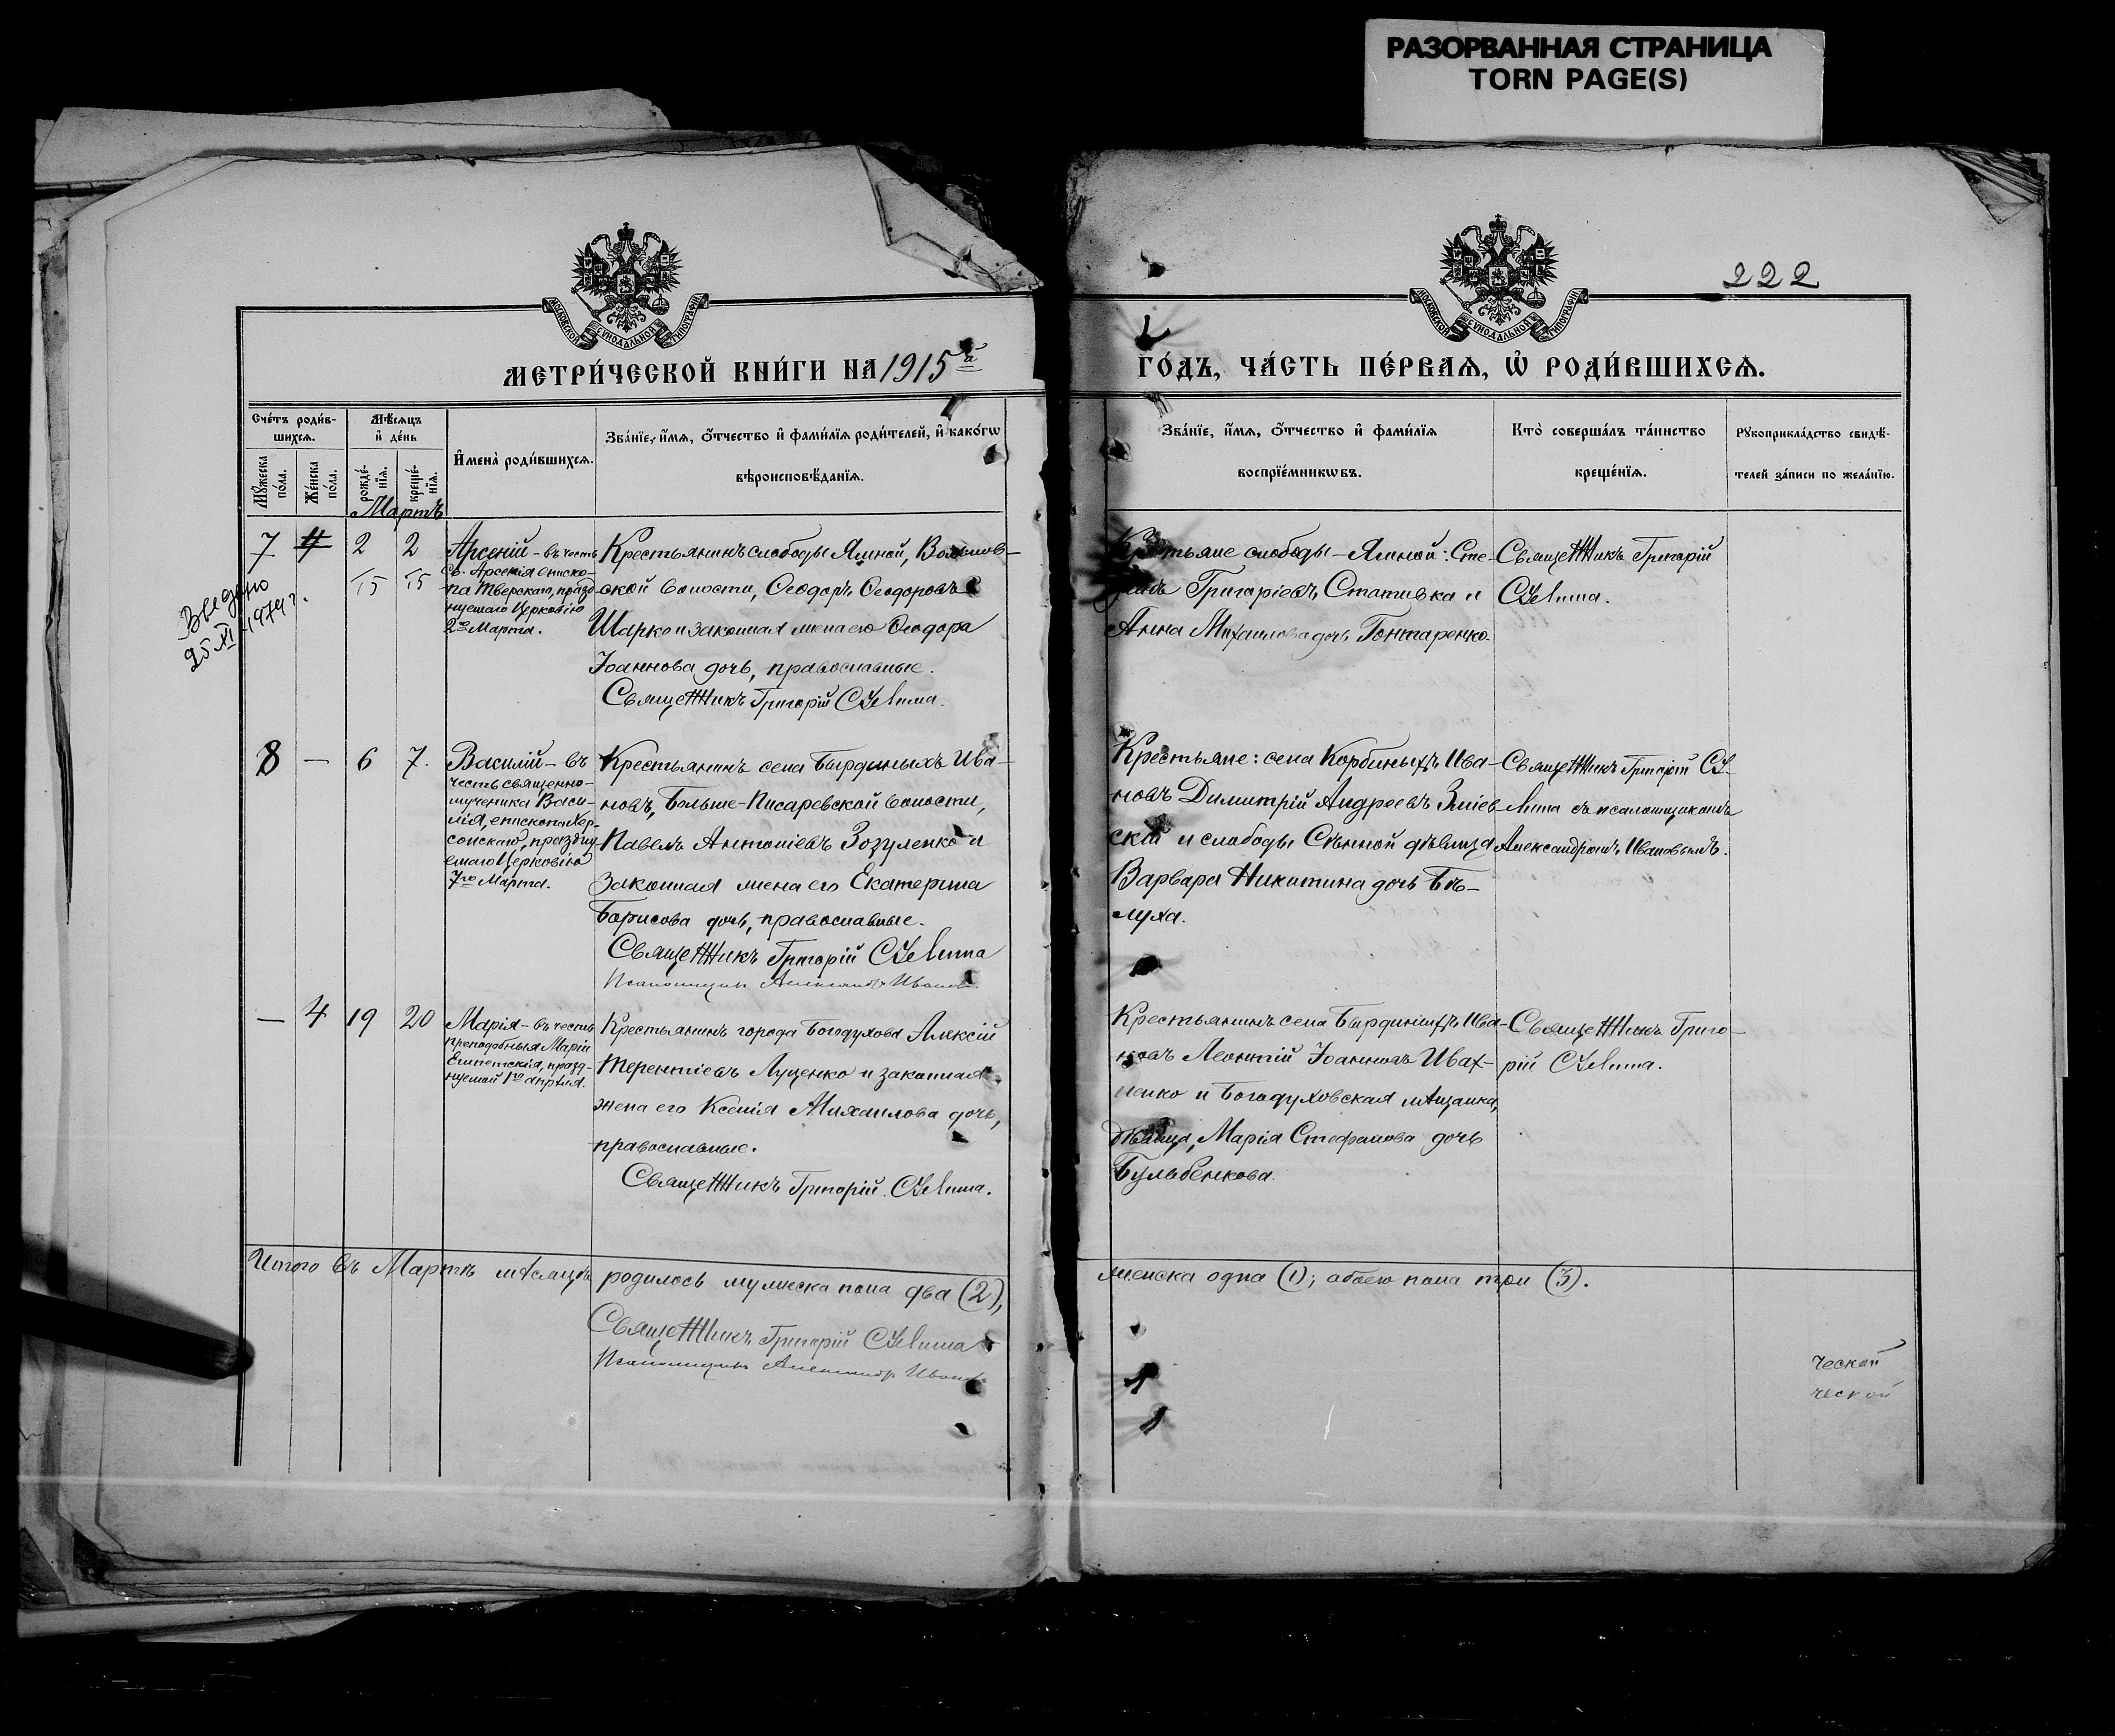 РАЗОРВАННАЯ СТРАНИЦА
TORN PAGE(S)
222
МОСКОВСКОЙ СѴНОДАЛЬНОЙ ТИПОГРАФІИ
МОСКОВСКОЙ СѴНОДАЛЬНОЙ ТИПОГРАФІИ
МЕТРИ́ЧЕСКОЙ КНИ́ГИ НА 1915й
ГО́ДЪ, ЧА́СТЬ ПЕ́РВАѦ, Ѡ҆ РОДИ́ВШИХСѦ.
Сче́тъ роди́в-
шихсѧ.
Мꙋ́жеска
по́ла.
Же́нска
по́ла.
Мѣ́сѧцъ
и҆ де́нь
рожде́-
нїѧ.
креще́-
нїѧ.
И҆мена̀ роди́вшихсѧ.
Зва́нїе, и҆́мѧ, ѻ҆́тчество и҆ фами́лїѧ роди́телей, и҆ како́гѡ
вѣроисповѣ́данїѧ.
Зва́нїе, и҆́мѧ, ѻ҆́тчество и҆ фами́лїѧ
воспрїе́мникѡвъ.
Кто̀ соверша́лъ та́инство
креще́нїѧ.
Рꙋкоприкла́дство свидѣ́-
телей за́писи по жела́нїю.
Мартъ
7
2
2
15
15
Арсеній - въ честь
св. Арсенія еписко-
па Тверскаго, празд-
нуемаго Церковію
2го Марта.
Крестьянинъ слободы Ямной,
ской волости, Ѳеодоръ Ѳеодоровъ
Шарко и законная жена его Ѳеодора
Іоаннова дочь, православные.
Священникъ Григорій
Крестьяне слободы - Ямной: Сте-
фанъ Григоріевъ Стативка и
Анна Михаилова дочь Гонтаренко.
Священникъ Григорій
Введено
25 XI 1974 г.
8
—
6
7.
Василій - въ
честь священно-
мученика Васи-
лія, епископа Хер-
сонскаго, праздну-
емаго Церковію
7го Марта.
Крестьянинъ села Бырдиныхъ Ива-
новъ, Больше-Писаревской волости,
Павелъ Антоніевъ Зозуленко и
законная жена его Екатерина
Борисова дочь, православные.
Священникъ Григорій
Псаломщикъ Александръ Ивановъ
Крестьяне: села Корбиныхъ Ива-
новъ Димитрій Андреевъ Зміев-
скій и слободы Сѣнной дѣвица
Варвара Никитина дочь Бѣ-
луха.
Священникъ Григорій
съ псаломщикомъ
Александромъ Ивановымъ.
—
4
19
20
Марія - въ честь
преподобныя Маріи
Египетскія, празд-
нуемой 1го апрѣля.
Крестьянинъ города Богодухова Алексій
Терентіевъ Луценко и законная
жена его Ксенія Михаилова дочь,
православные.
Священникъ Григорій
Крестьянинъ села Бырдиныхъ Ива-
новъ Леонтій Іоанновъ Ивах-
ненко и Богодуховская мѣщанка,
дѣвица, Марія Стефанова дочь
Бульбенкова.
Священникъ Григо-
рій
Итого въ Мартѣ мѣсяцѣ родилось мужеска пола два (2),
женска одна (1); обоего пола три (3).
Священникъ Григорій
Псаломщикъ Александръ Ивановъ
ческой
ческой